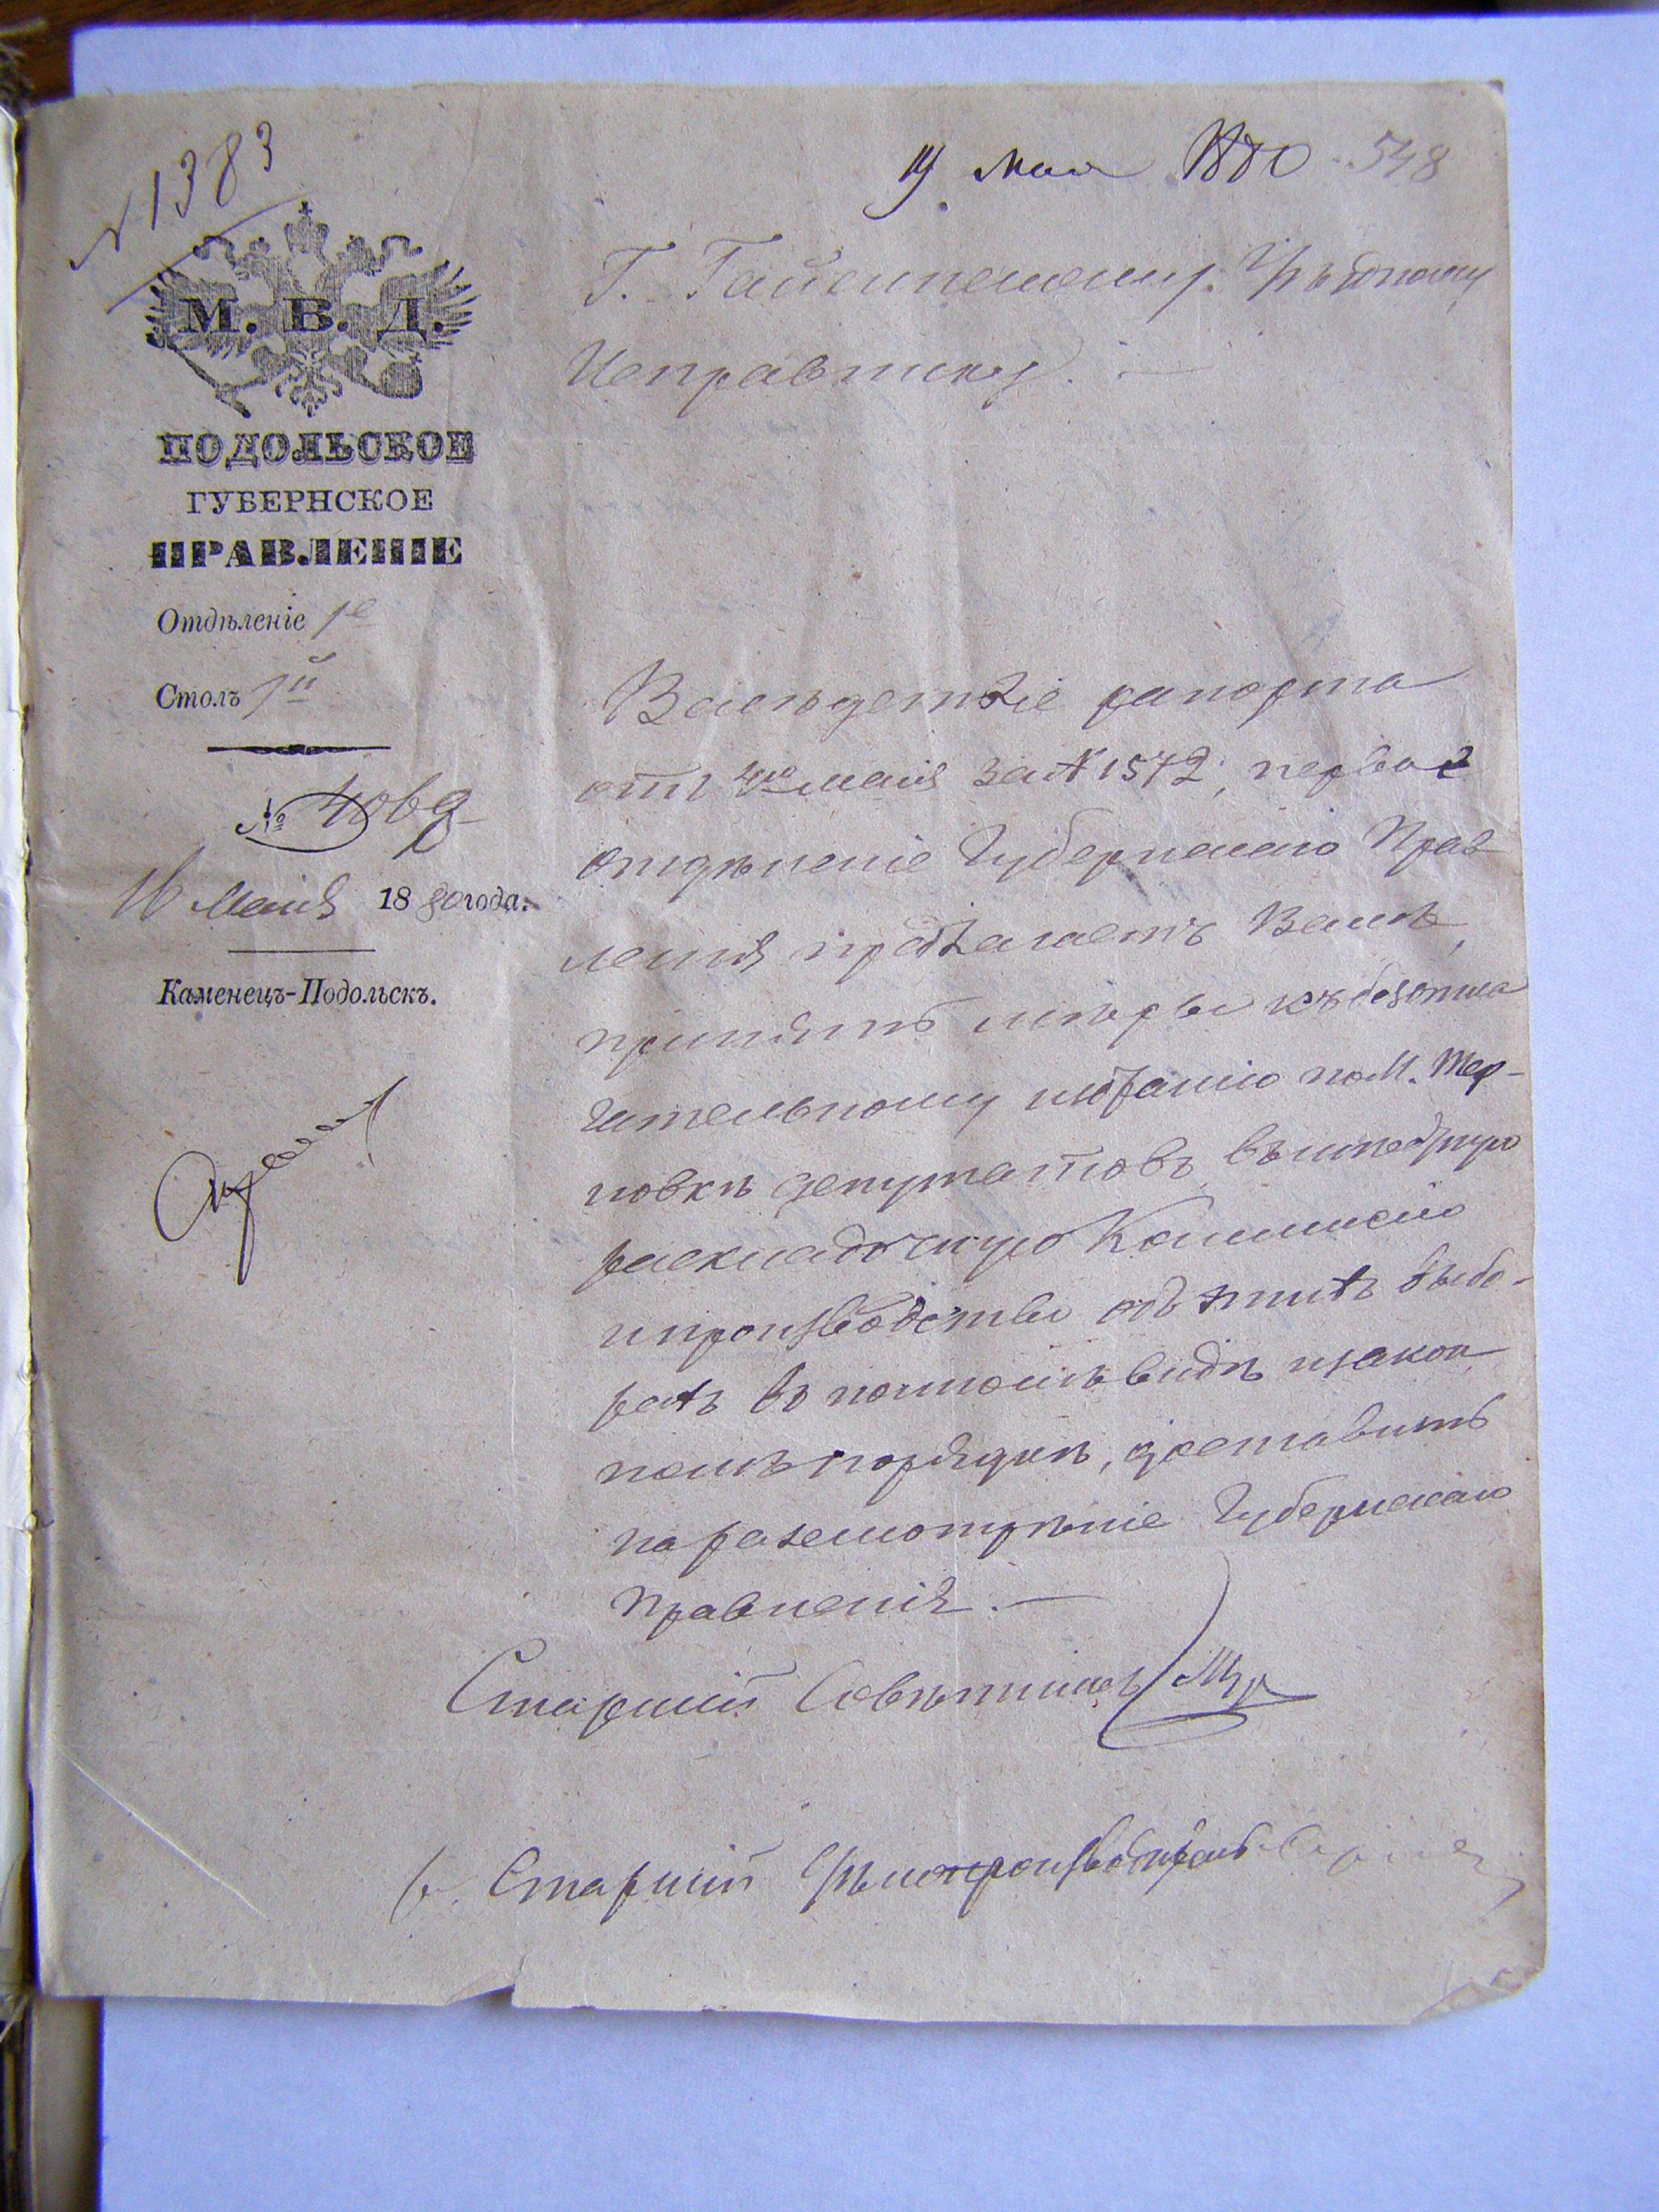 N 1383
19 мая 1880
548
М. В. Д.
ПОДОЛЬСКОЕ
ГУБЕРНСКОЕ
ПРАВЛЕНІЕ
Отдѣленіе 1е
Столъ 1й
№
16 Маія 1880 года.
Каменецъ-Подольскъ.
Г. Гайсинскому Уѣздному
Исправнику. —
Вслѣдствіе рапорта
отъ 4го маія за N 1572, первое
отдѣленіе Губернскаго Прав
ленія предлагаетъ Вамъ,
принять мѣры къ безотла
гательному избранію по м. Тер-
новкѣ депутатовъ въ
раскладочную Коммисію
и производство объ этихъ выбо-
рахъ въ полномъ видѣ и закон
номъ порядкѣ, доставить
на разсмотрѣніе Губернскаго
Правленія. —
Старшій Совѣтникъ
Старшій Дѣлопроизводитель